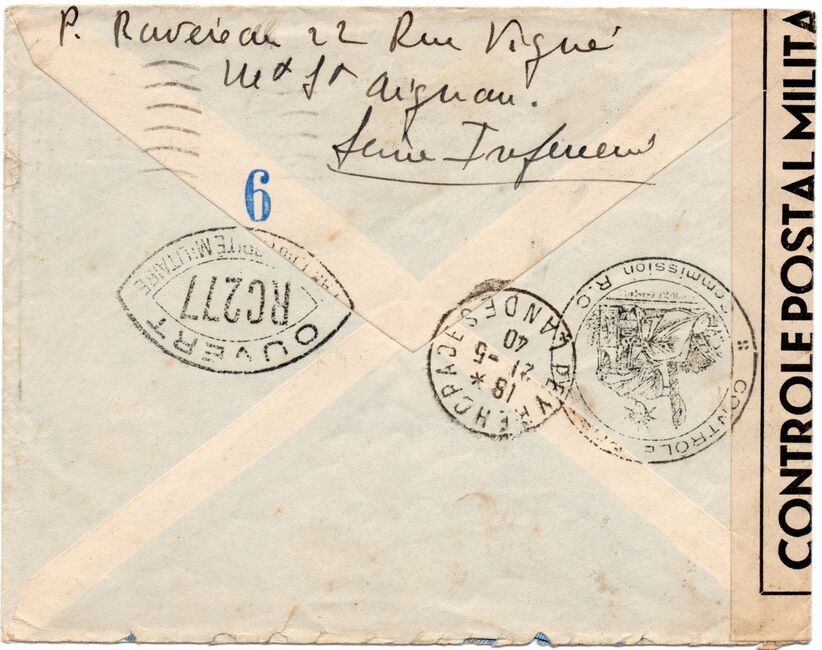 P. Ravereau 22 Rue Vigné
Mt St Aignan.
Seine Inférieure
6
OUVERT
RC277
PAR L'AUTORITÉ MILITAIRE
18 *
21 -5
40
CONTROLE
Commission R.C
CONTROLE POSTAL MILITA